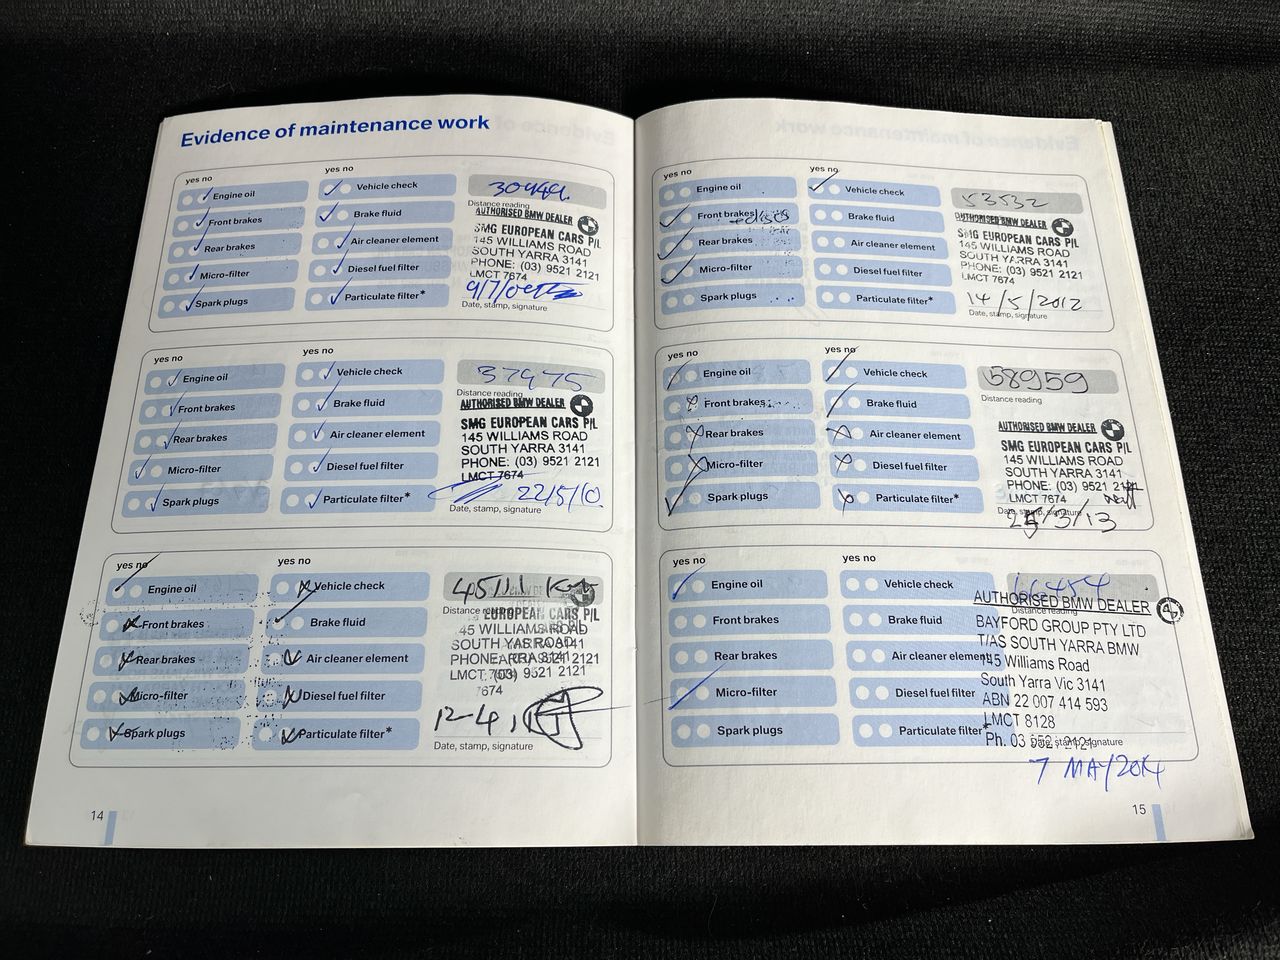 Evidence of maintenance work
yes no
yes no
Engine oil
Vehicle check
Front brakes
Brake fluid
Rear brakes
Air cleaner element
Micro-filter
Diesel fuel filter
Spark plugs
Particulate filter*
Distance reading
AUTHORISED BMW DEALER
SMG EUROPEAN CARS P/L
145 WILLIAMS ROAD
SOUTH YARRA 3141
PHONE: (03) 9521 2121
LMCT 7674
Date, stamp, signature
yes no
yes no
Engine oil
Vehicle check
Front brakes
Brake fluid
Rear brakes
Air cleaner element
Micro-filter
Diesel fuel filter
Spark plugs
Particulate filter*
37475
Distance reading
AUTHORISED BMW DEALER
SMG EUROPEAN CARS P/L
145 WILLIAMS ROAD
SOUTH YARRA 3141
PHONE: (03) 9521 2121
LMCT 7674
22/5/10
Date, stamp, signature
yes no
yes no
Engine oil
Vehicle check
Front brakes
Brake fluid
Rear brakes
Air cleaner element
Micro-filter
Diesel fuel filter
Spark plugs
Particulate filter*
45111 Km
Distance
EUROPEAN CARS P/L
45 WILLIAMS ROAD
SOUTH YARRA
PHONE:
9521 2121
7674
Date, stamp, signature
14
yes no
yes no
Engine oil
Vehicle check
Front brakes
Brake fluid
Rear brakes
Air cleaner element
Micro-filter
Diesel fuel filter
Spark plugs
Particulate filter*
53532
AUTHORISED BMW DEALER
SMG EUROPEAN CARS P/L
145 WILLIAMS ROAD
SOUTH YARRA 3141
PHONE: (03) 9521 2121
LMCT 7674
14/5/2012
Date, stamp, signature
yes no
yes no
Engine oil
Vehicle check
Front brakes
Brake fluid
Rear brakes
Air cleaner element
Micro-filter
Diesel fuel filter
Spark plugs
Particulate filter*
58959
Distance reading
AUTHORISED BMW DEALER
SMG EUROPEAN CARS P/L
145 WILLIAMS ROAD
SOUTH YARRA 3141
PHONE: (03) 9521 2121
LMCT 7674
Date, stamp, signature
25/3/13
yes no
yes no
Engine oil
Vehicle check
Front brakes
Brake fluid
Rear brakes
Air cleaner element
Micro-filter
Diesel fuel filter
Spark plugs
Particulate filter*
AUTHORISED BMW DEALER
Distance reading
BAYFORD GROUP PTY LTD
T/AS SOUTH YARRA BMW
145 Williams Road
South Yarra Vic 3141
ABN 22 007 414 593
LMCT 8128
Ph. 03 9521 2121
Date, stamp, signature
7 MAY 2014
15